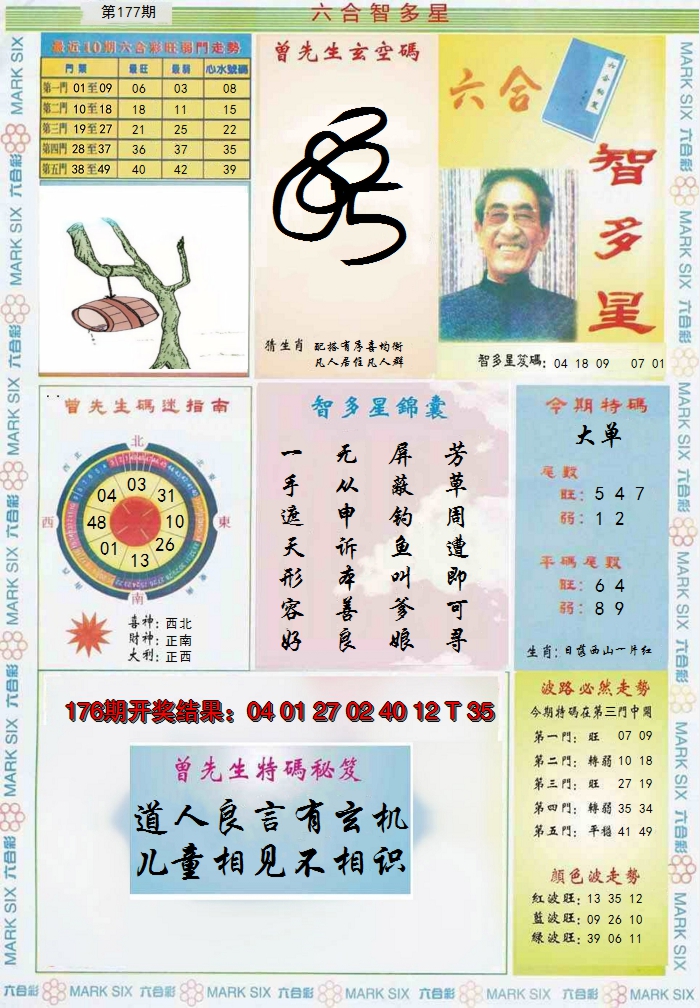 第177期
六合智多星
最近10期六合彩旺弱門走勢
門票 最旺 最弱 心水號碼
第一門 01至09 06 03 08
第二門 10至18 18 11 15
第三門 19至27 21 25 22
第四門 28至37 36 37 35
第五門 38至49 40 42 39
曾先生玄空碼
猜生肖 配搭有序喜均衡
凡人居住凡人群
六合
智多星
智多星笈碼: 04 18 09 07 01
曾先生碼迷指南
北
西
東
南
04 03 31
48 10
01 13 26
喜神: 西北
財神: 正南
大利: 正西
智多星錦囊
芳草周遭即可寻
屏蔽钓鱼叫爹娘
无从申诉本善良
一手遮天形容好
今期特碼
大单
尾數
旺: 5 4 7
弱: 1 2
平碼尾數
旺: 6 4
弱: 8 9
生肖: 日落西山一片红
176期开奖结果: 04 01 27 02 40 12 T 35
曾先生特碼秘笈
道人良言有玄机
儿童相见不相识
波路必然走勢
今期特碼在第三門中開
第一門: 旺 07 09
第二門: 轉弱 10 18
第三門: 旺 27 19
第四門: 轉弱 35 34
第五門: 平穩 41 49
顔色波走勢
紅波旺: 13 35 12
藍波旺: 09 26 10
綠波旺: 39 06 11
六合彩 MARK SIX 六合彩 MARK SIX 六合彩 MARK SIX 六合彩 MARK SIX 六合彩